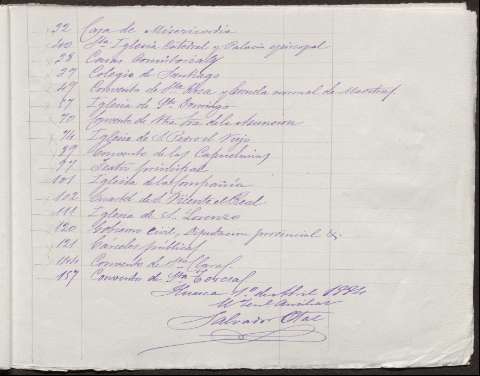 32 Casa de Misericordia
40 Sta Iglesia Catedral y Palacio episcopal
38 Casas Consistoriales
37 Colegio de Santiago
49 Convento de Sta Rosa y Escuela normal de Maestras
67 Iglesia de Sto Domingo
70 Convento de Ntra Sra de la Asuncion
74 Iglesia de S. Pedro el Viejo
89 Convento de las Capuchinas
97 Teatro principal
101 Iglesia de la Compañia
102 Cuartel de S. Vicente el Real
111 Iglesia de S. Lorenzo
120 Gobierno Civil, Diputacion provincial &
121 Cárceles públicas
144 Convento de Sta Clara
157 Convento de Sta Teresa
Huesca 1º de Abril 1894
El Auxiliar
Salvador